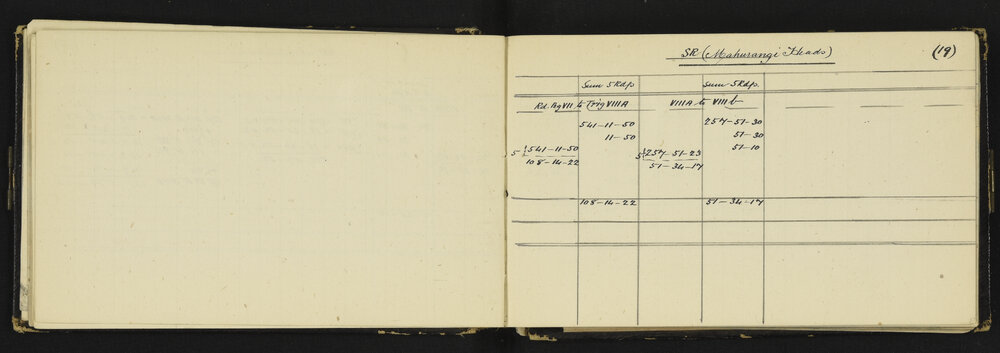 SR (Mahurangi Heads) (19)
Sum 5 Rdgs Sum 5 Rdgs.
Rd. Pg VII to Trig VIII A VIII A to VIII b
541-11-50 257-51-30
11-50 51-30
51-10
5 541-11-50 5 257-51-23
108-14-22 51-34-17
108-14-22 51-34-17